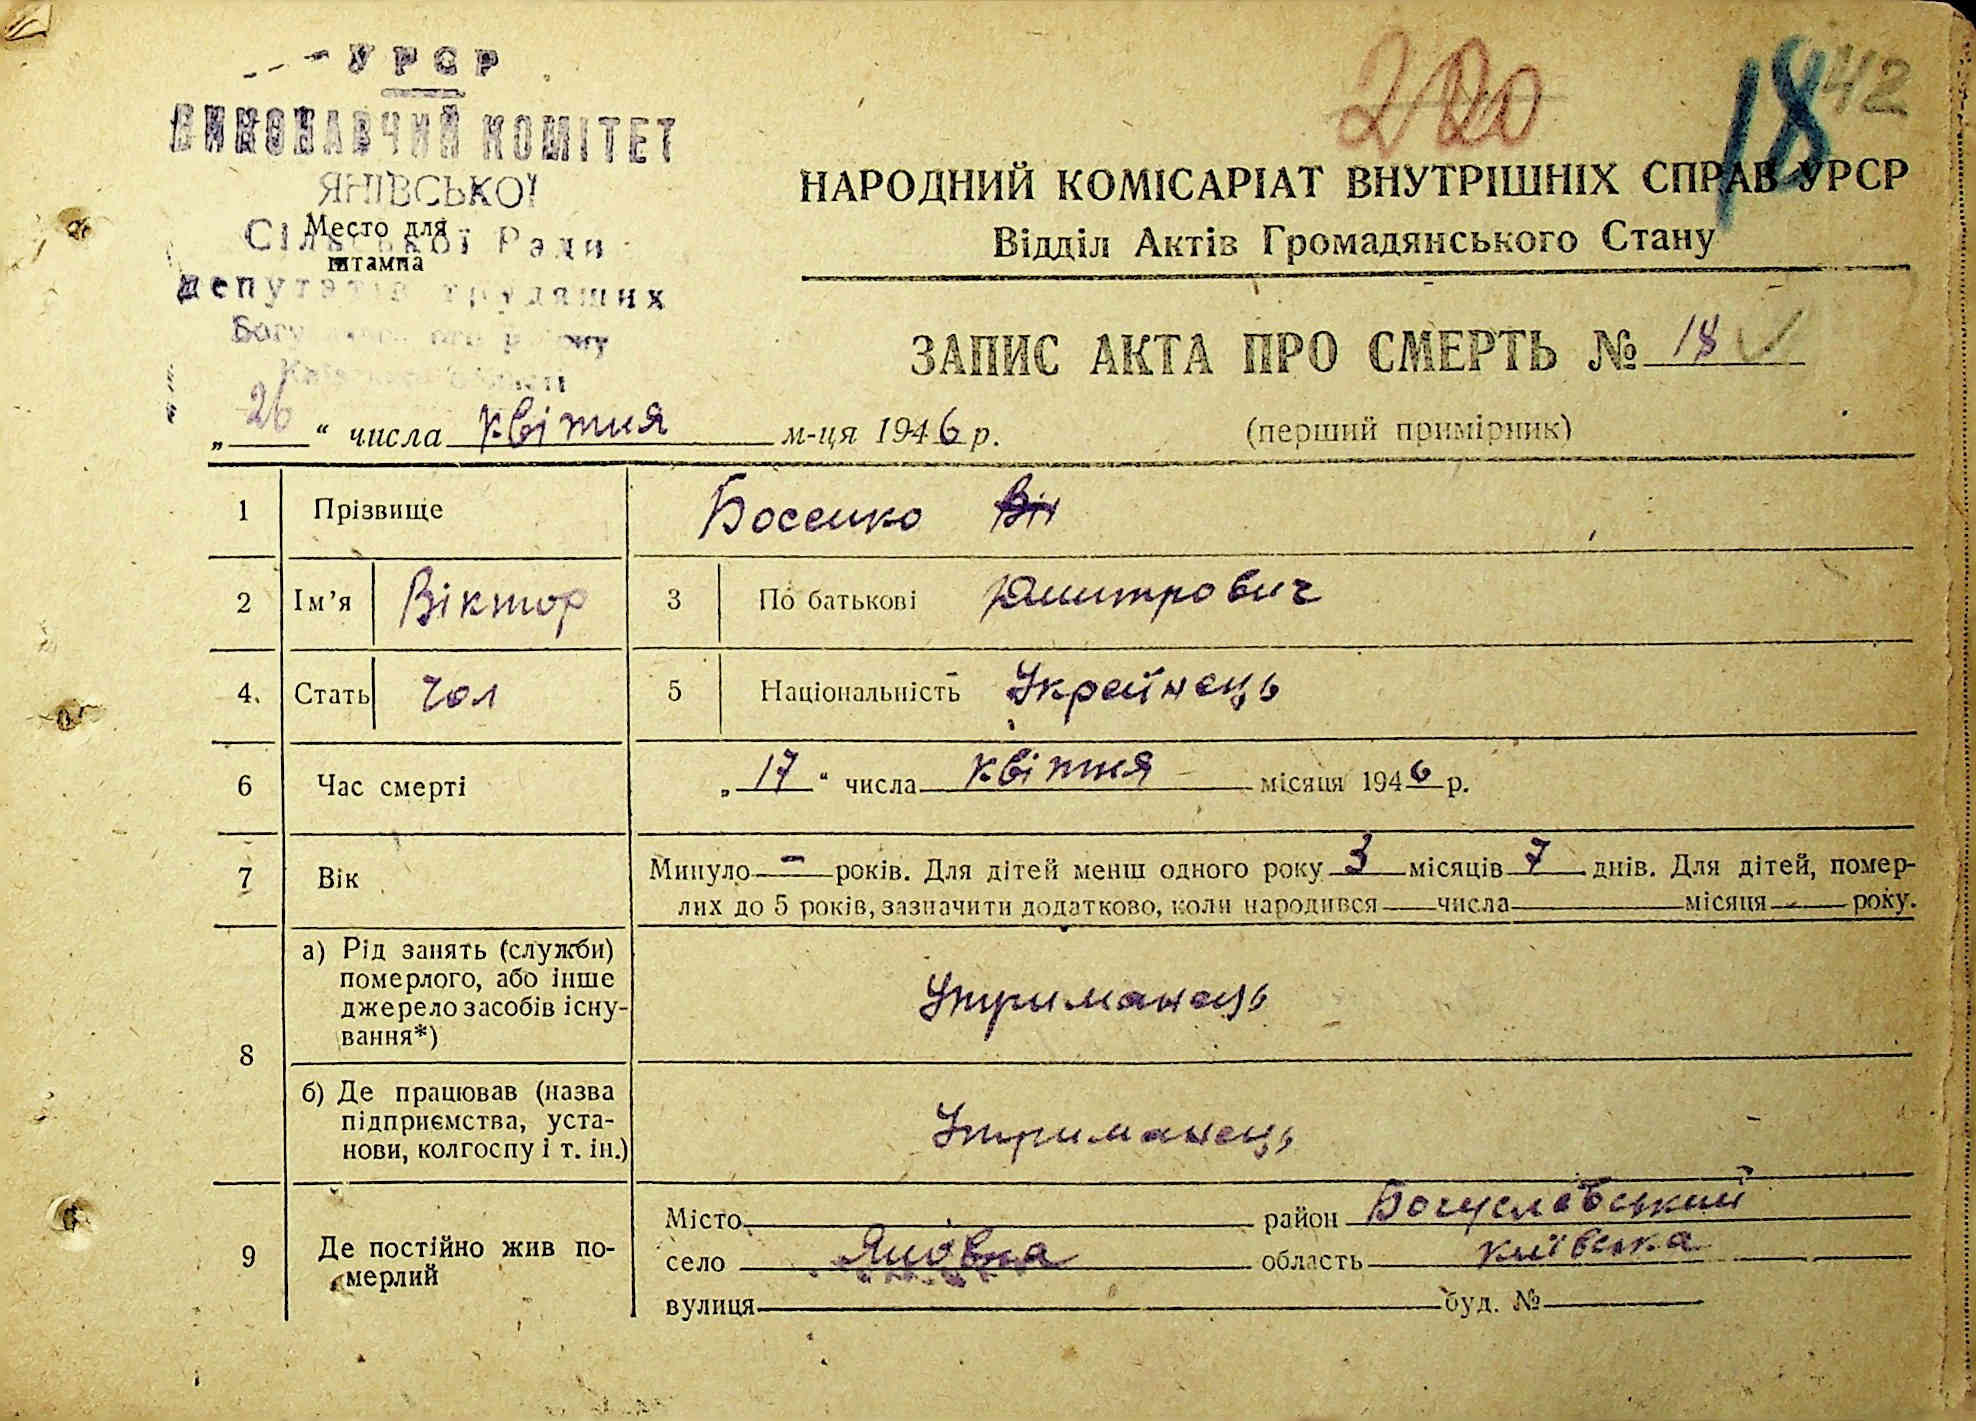 УРСР
ВИКОНАВЧИЙ КОМІТЕТ
ЯНІВСЬКОЇ
Сільської Ради
депутатів трудящих
Место для
штампа
220
18
42
НАРОДНИЙ КОМІСАРІАТ ВНУТРІШНІХ СПРАВ УРСР
Відділ Актів Громадянського Стану
ЗАПИС АКТА ПРО СМЕРТЬ № 18
„ 26 “ числа квітня м-ця 1946 р. (перший примірник)
1 Прізвище Босенко Він
2 Ім’я Віктор 3 По батькові Дмитрович
4. Стать Чол 5 Національність Українець
6 Час смерті „ 17 “ числа квітня місяця 1946 р.
7 Вік Минуло - років. Для дітей менш одного року 3 місяців 7 днів. Для дітей, помер-
лих до 5 років, зазначити додатково, коли народився числа місяця року.
8 а) Рід занять (служби)
померлого, або інше
джерело засобів існу-
вання*)
Утриманець
б) Де працював (назва
підприємства, уста-
нови, колгоспу і т. ін.)
Утриманець
9 Де постійно жив по-
мерлий
Місто район Богуславський
село Янівка область київська
вулиця буд. №